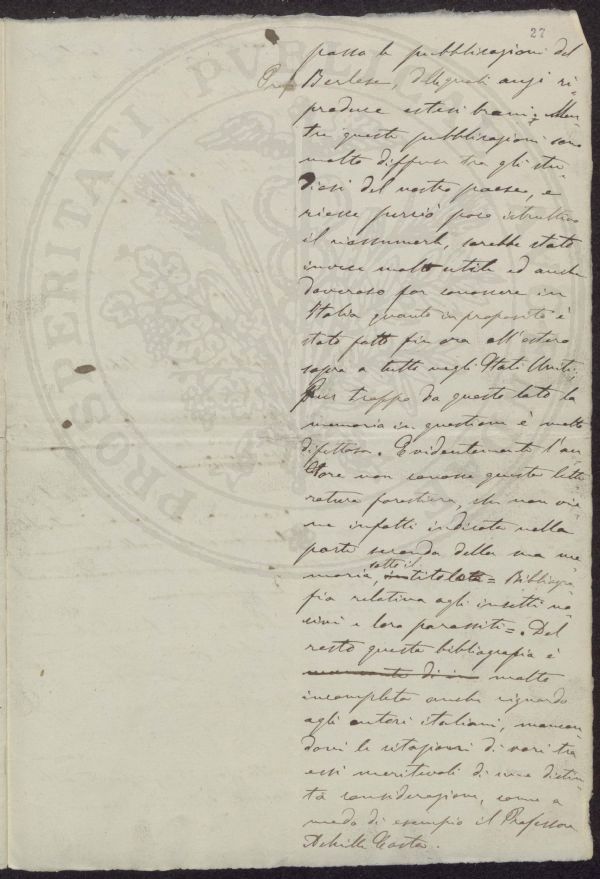 27
passa le pubblicazioni del
Prof Berlese, delle quali anzi ri-
produce estesi brani; Men-
tre queste pubblicazioni sono
molto diffuse tra gli stu-
diosi del nostro paese, e
riesce perciò poco istruttivo
il riassumerle, sarebbe stato
invece molto utile ed anche
doveroso far conoscere in
Italia quanto in proposito è
stato fatto fin ora all'estero
sopra a tutto negli Stati Uniti.
Pur troppo da questo lato la
memoria in questione è molto
difettosa. Evidentemente l'au-
tore non conosce questa lette
ratura forestiera, che non vie-
ne infatti indicata nella
parte seconda della sua me-
moria, sotto il titolo = Bibliogra
fia relativa agli insetti no
civi e loro parassiti =. Del
resto questa bibliografia è
mancante di in molto
incompleta anche riguardo
agli autori italiani, mancan
dovi le citazioni di vari tra
essi meritevoli di una distin-
ta considerazione, come a
modo di esempio il Professore
Achille Costa.
PROSPERITATI PUBLICAE